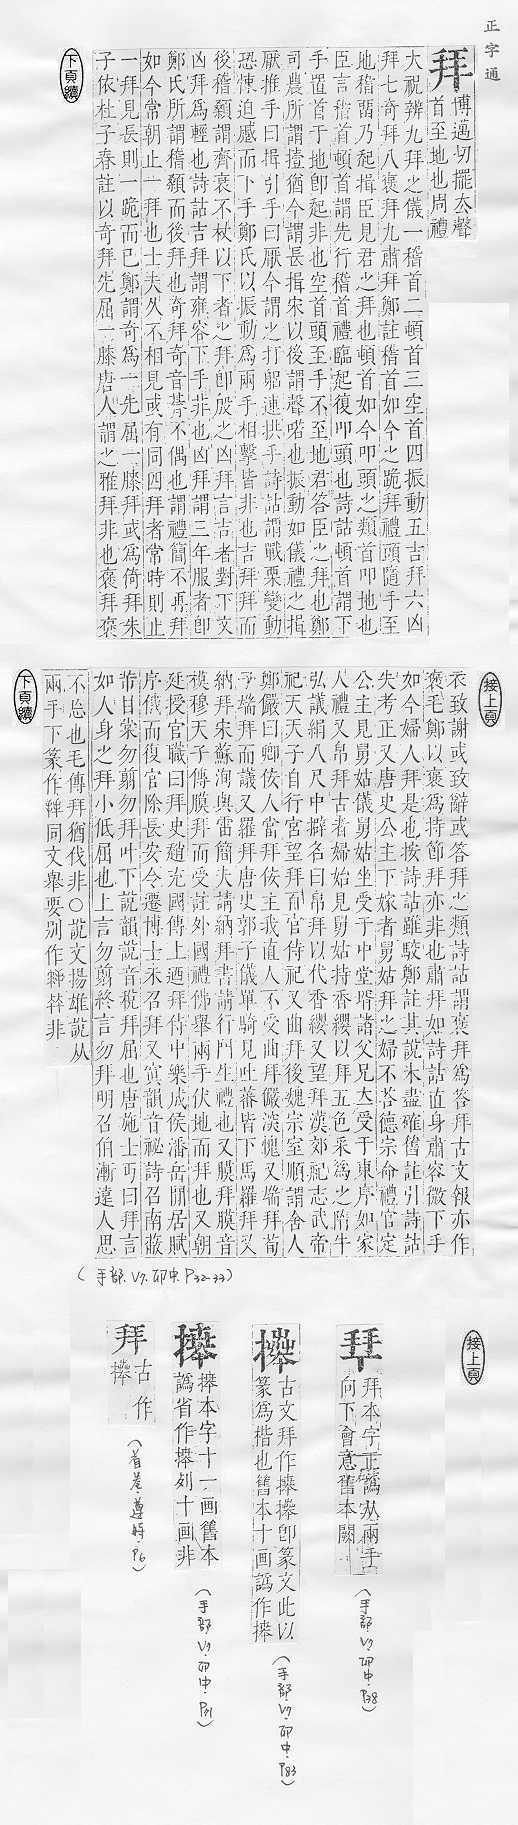 正字通
拜
博邁切擺去聲
首至地也周禮
大祝辨九拜之儀一稽首二頓首三空首四振動五吉拜六凶
拜七奇拜八褒拜九肅拜鄭註稽首如今之跪拜禮頭隨手至
地稽畱乃起揖臣見君之拜也頓首如今叩頭之類首叩地也
臣言稽首頓首謂先行稽首禮臨起復叩頭也詩詁頓首謂下
手置首于地卽起非也空首頭至手不至地君答臣之拜也鄭
司農所謂撎猶今謂長揖宋以後謂聲喏也振動如儀禮之揖
厭推手曰揖引手曰厭今謂之打躬連拱手詩詁謂戰栗變動
恐悚迫感而下手鄭氏以振動爲兩手相擊皆非也吉拜拜而
後稽顙謂齊衰不杖以下者之拜卽殷之凶拜言吉者對下文
凶拜爲輕也詩詁吉拜謂雍容下手非也凶拜謂三年服者卽
鄭氏所謂稽顙而後拜也奇拜奇音羇不偶也謂禮簡不再拜
如今常朝止一拜也士夫久不相見或有同四拜者常時則止
一拜見長則一跪而已鄭謂奇爲一先屈一膝拜或爲倚拜朱
子依杜子春註以奇拜先屈一膝唐人謂之雅拜非也褒拜褒
下頁續
接上頁
衣致謝或致辭或答拜之類詩詁謂褒拜爲答拜古文報亦作
褒毛鄭以褒爲持節拜亦非也肅拜如詩詁直身肅容微下手
如今婦人拜是也按詩詁雖駁鄭註其說未盡確舊註引詩詁
失考正又唐史公主下嫁者舅姑拜之婦不荅德宗命禮官定
公主見舅姑儀舅姑坐受于中堂壻諸父兄夫受于東序如家
人禮又帛拜古者婦始見舅姑持香纓以拜五色采爲之隋牛
弘議絹八尺中擗名曰帛拜以代香纓又望拜漢郊祀志武帝
祀天天子自行宮望拜百官侍祀又曲拜後魏宗室順謂舍人
鄭儼曰卿佞人當拜佞主我直人不受曲拜儼深愧又端拜荀
子端拜而議又羅拜唐史郭子儀單騎見吐蕃皆下馬羅拜又
納拜宋蘇洵與雷簡夫請納拜書請行門生禮也又膜拜膜音
模穆天子傳膜拜而受註外國禮佛舉兩手伏地而拜也又朝
廷授官職曰拜史趙充國傳上迺拜侍中樂成侯潘岳閒居賦
序俄而復官除長安令遷博士未召拜又寘韻音祕詩召南蔽
芾甘棠勿翦勿拜叶下說韻說音稅拜屈也唐施士丐曰拜言
如人身之拜小低屈也上言勿翦終言勿拜明召伯漸遠人思
不忘也毛傳拜猶伐非○說文揚雄說从
兩手下篆作𢫶同文舉要別作
下頁續
(手部.V7.卯中.P32-33)
接上頁
拜本字正譌从兩手
向下會意舊本闕
(手部.V7.卯中.P38)
古文拜作𢷎𢷎卽篆文此以
篆爲楷也舊本十画譌作捧
(手部.V7.卯中.P83)
捧本字十一画舊本
譌省作捧列十画非
(手部.V7.卯中.P51)
拜
古作
(首卷.遵時.P6)